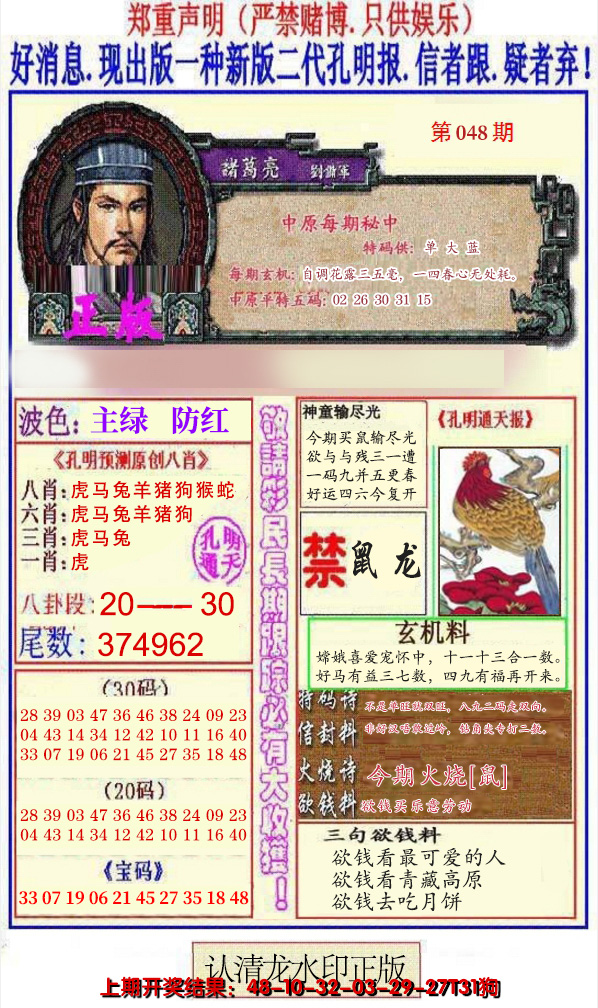 郑重声明（严禁赌博.只供娱乐）
好消息.现出版一种新版二代孔明报.信者跟.疑者弃！
第 048 期
諸葛亮 劉備軍
中原每期秘中
特码供：单 大 蓝
每期玄机：自调花露三五毫，一四春心无处耗。
中原平特五码：02 26 30 31 15
正版
波色：主绿 防红
《孔明预测原创八肖》
八肖：虎马兔羊猪狗猴蛇
六肖：虎马兔羊猪狗
三肖：虎马兔
一肖：虎
孔明
通天
八卦段：20——30
尾数：374962
（30码）
28 39 03 47 36 46 38 24 09 23
04 43 14 34 12 42 10 11 16 40
33 07 19 06 21 45 27 35 18 48
（20码）
28 39 03 47 36 46 38 24 09 23
04 43 14 34 12 42 10 11 16 40
《宝码》
33 07 19 06 21 45 27 35 18 48
敬請彩民長期跟踪必有大收獲！
神童输尽光
今期买鼠输尽光
欲与与残三一遭
一码九并五更春
好运四六今复开
《孔明通天报》
禁 鼠 龙
玄机料
嫦娥喜爱宠怀中，十一十三合一数。
好马有益三七数，四九有福再开来。
特码诗 不是单旺就双旺，八九二码走双向。
信封料
火烧诗 今期火烧[鼠]
欲钱料 欲钱买乐意劳动
三句欲钱料
欲钱看最可爱的人
欲钱看青藏高原
欲钱去吃月饼
认清龙水印正版
上期开奖结果：48-10-32-03-29-27T31狗